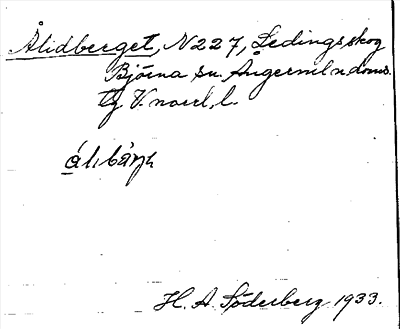 Ålidberget, N227, Ledingsskog
Björna sn. Ångerml. n. doms.
tg V. norrl. l.
H. A. Söderberg 1933.